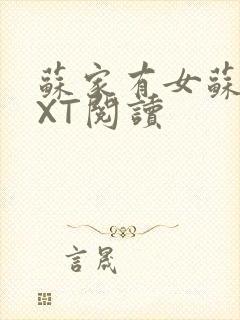 蘇家有女蘇
XT閱讀
言晟